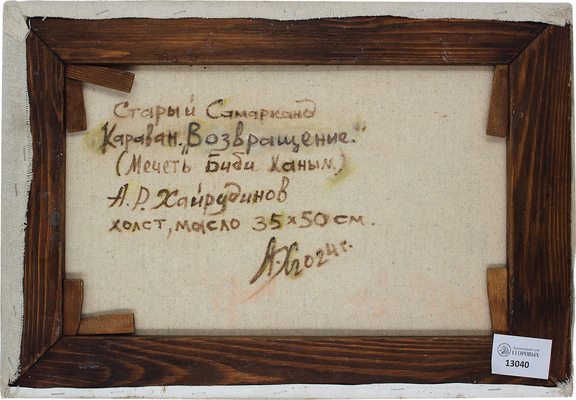 Старый Самарканд
Караван. "Возвращение."
(Мечеть Биди Ханым.)
А.Р. Хайрудинов
холст, масло 35×50 см.
А.Х 2024 г.
ЕГОРОВЫХ
13040